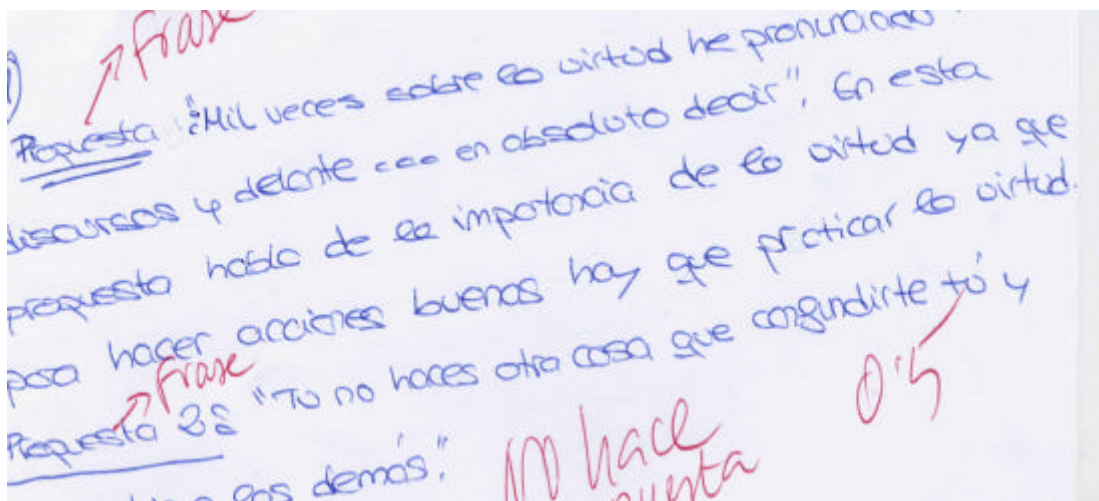 Frase
Propuesta: "Mil veces sobre la virtud he pronunciado
discursos y delante ... en absoluto decir". En esta
propuesta habla de la impotancia de la virtud ya que
para hacer acciones buenas hay que prcticar la virtud.
Frase
Propuesta 2: "Tú no haces otra cosa que confundirte tú y
a los demás."
No hace
0'5